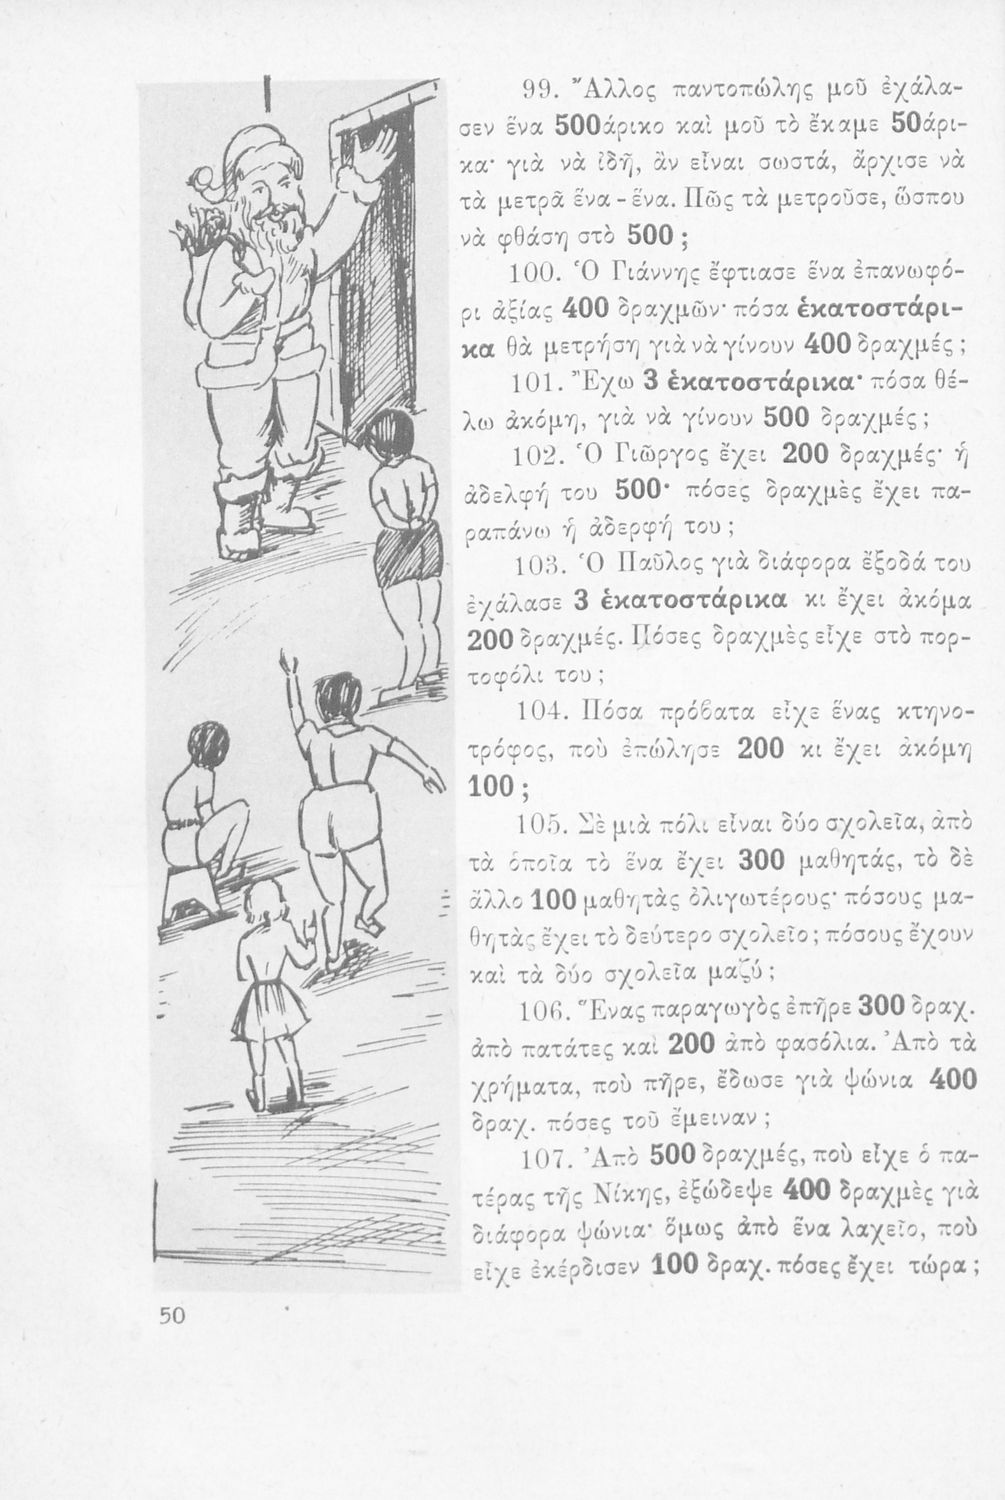 99. Ἄλλος παντοπώλης μοῦ ἐχάλα-
σεν ἕνα 500άρικο καὶ μοῦ τὸ ἔκαμε 50άρι-
κα· γιὰ νὰ ἰδῆ, ἂν εἶναι σωστά, ἄρχισε νὰ
τὰ μετρᾶ ἕνα - ἕνα. Πῶς τὰ μετροῦσε, ὥσπου
νὰ φθάση στὸ 500 ;
100. Ὁ Γιάννης ἔφτιασε ἕνα ἐπανωφό-
ρι ἀξίας 400 δραχμῶν· πόσα ἑκατοστάρι-
κα θὰ μετρήση γιὰ νὰ γίνουν 400 δραχμές ;
101. Ἔχω 3 ἑκατοστάρικα· πόσα θέ-
λω ἀκόμη, γιὰ νὰ γίνουν 500 δραχμές ;
102. Ὁ Γιῶργος ἔχει 200 δραχμές· ἡ
ἀδελφή του 500· πόσες δραχμὲς ἔχει πα-
ραπάνω ἡ ἀδερφή του ;
103. Ὁ Παῦλος γιὰ διάφορα ἔξοδά του
ἐχάλασε 3 ἑκατοστάρικα κι ἔχει ἀκόμα
200 δραχμές. Πόσες δραχμὲς εἶχε στὸ πορ-
τοφόλι του ;
104. Πόσα πρόβατα εἶχε ἕνας κτηνο-
τρόφος, ποὺ ἐπώλησε 200 κι ἔχει ἀκόμη
100 ;
105. Σὲ μιὰ πόλι εἶναι δύο σχολεῖα, ἀπὸ
τὰ ὁποῖα τὸ ἕνα ἔχει 300 μαθητάς, τὸ δὲ
ἄλλο 100 μαθητὰς ὀλιγωτέρους· πόσους μα-
θητὰς ἔχει τὸ δεύτερο σχολεῖο ; πόσους ἔχουν
καὶ τὰ δύο σχολεῖα μαζύ ;
106. Ἕνας παραγωγὸς ἐπῆρε 300 δραχ.
ἀπὸ πατάτες καὶ 200 ἀπὸ φασόλια. Ἀπὸ τὰ
χρήματα, ποὺ πῆρε, ἔδωσε γιὰ ψώνια 400
δραχ. πόσες τοῦ ἔμειναν ;
107. Ἀπὸ 500 δραχμές, ποὺ εἶχε ὁ πα-
τέρας τῆς Νίκης, ἐξώδεψε 400 δραχμὲς γιὰ
διάφορα ψώνια· ὅμως ἀπὸ ἕνα λαχεῖο, ποὺ
εἶχε ἐκέρδισεν 100 δραχ. πόσες ἔχει τώρα ;
50